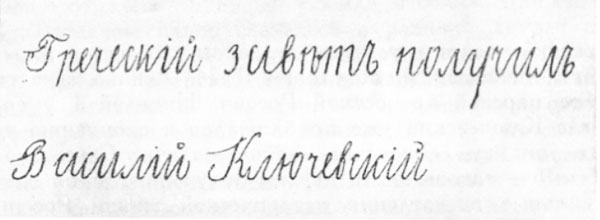 Греческій завѣтъ получилъ
Василій Ключевскій